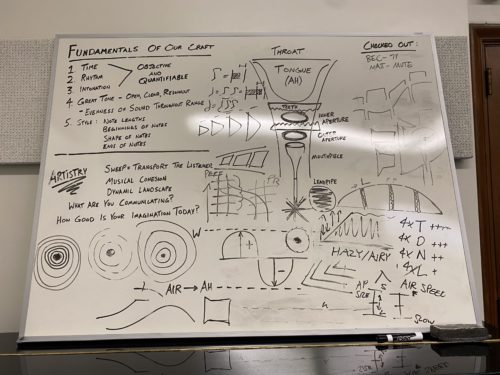 FUNDAMENTALS OF OUR CRAFT
1 TIME
2 RHYTHM
3 INTONATION
OBJECTIVE
AND
QUANTIFIABLE
4 GREAT TONE - OPEN, CLEAR, RESONANT
- EVENNESS OF SOUND THROUGHOUT RANGE
5. STYLE: NOTE LENGTHS
BEGINNINGS OF NOTES
SHAPE OF NOTES
ENDS OF NOTES
ARTISTRY
SWEEP = TRANSPORT THE LISTENER
MUSICAL COHESION
DYNAMIC LANDSCAPE
WHAT ARE YOU COMMUNICATING?
HOW GOOD IS YOUR IMAGINATION TODAY?
THROAT
TONGUE
(AH)
TEETH
INNER
APERTURE
OUTER
APERTURE
MOUTHPIECE
LEADPIPE
CHECKED OUT:
MUTE
W
+
-
HAZY/AIRY
4x T ++++
4x D +++
4x N ++
4x L +
AIR → AH
AP
SIZE
AIR SPEED
SLOW